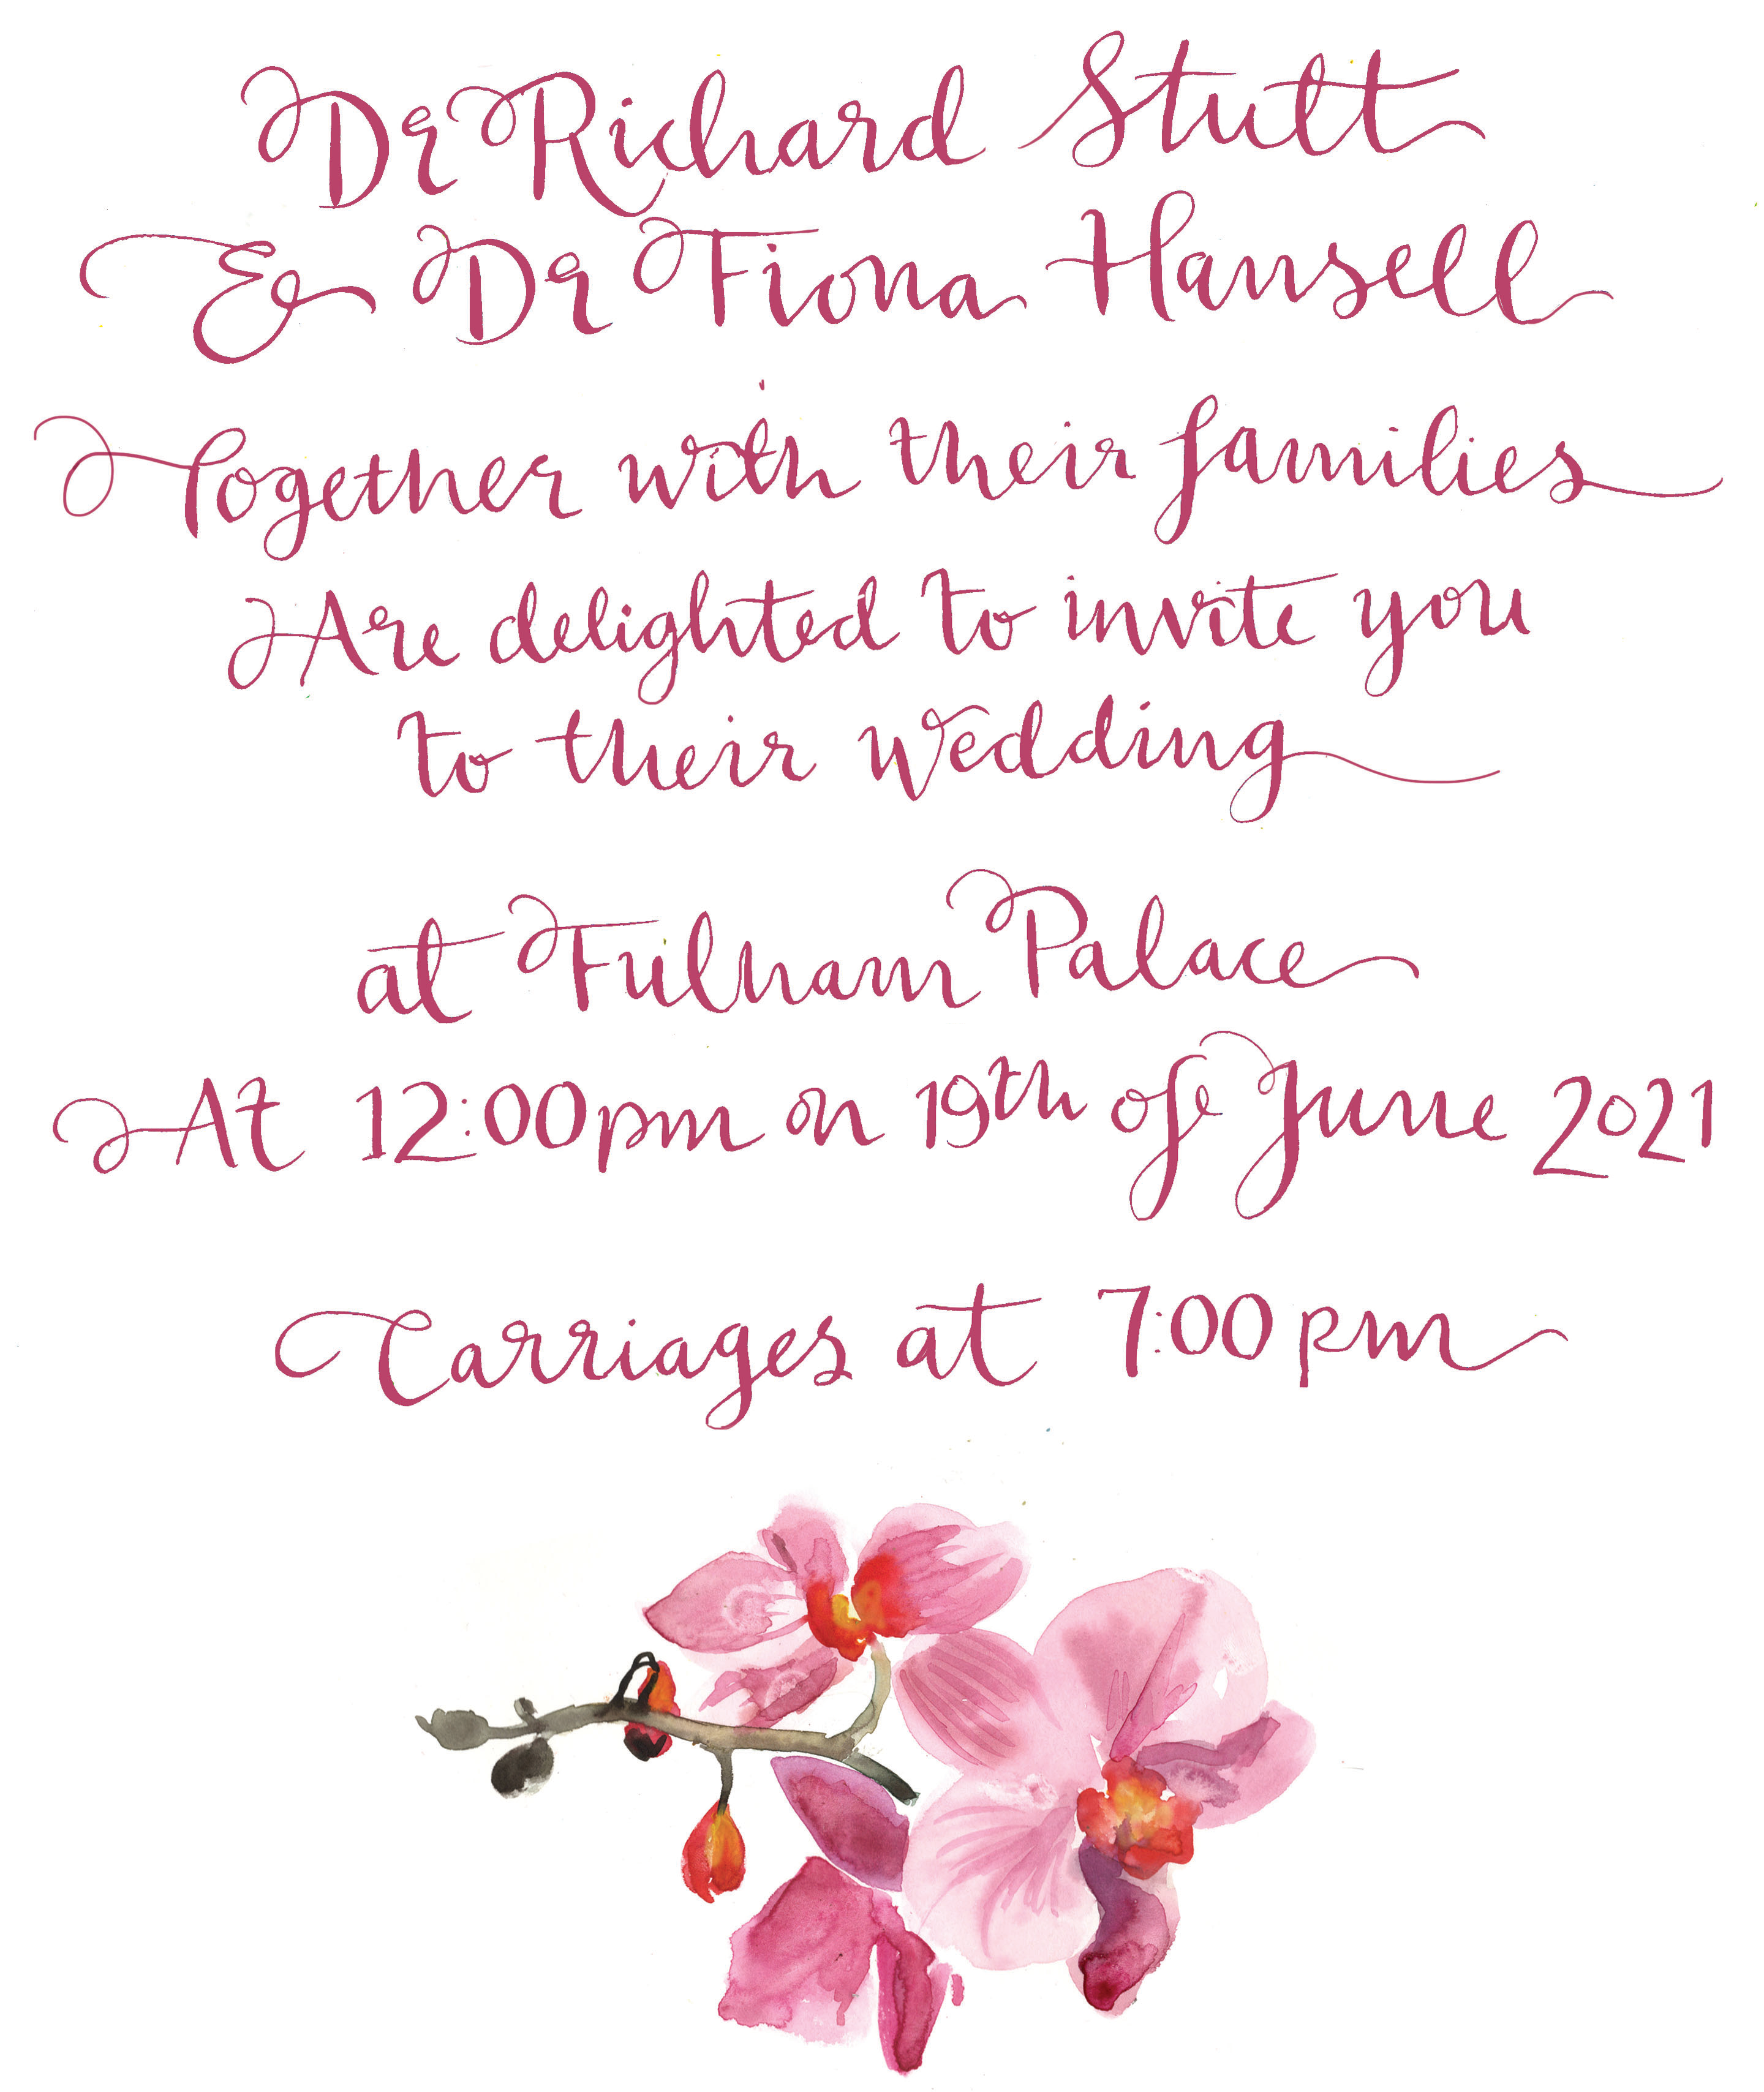 Dr Richard Stutt
& Dr Fiona Hansell
Together with their families
Are delighted to invite you
to their wedding
at Fulham Palace
At 12:00pm on 19th of June 2021
Carriages at 7:00 pm